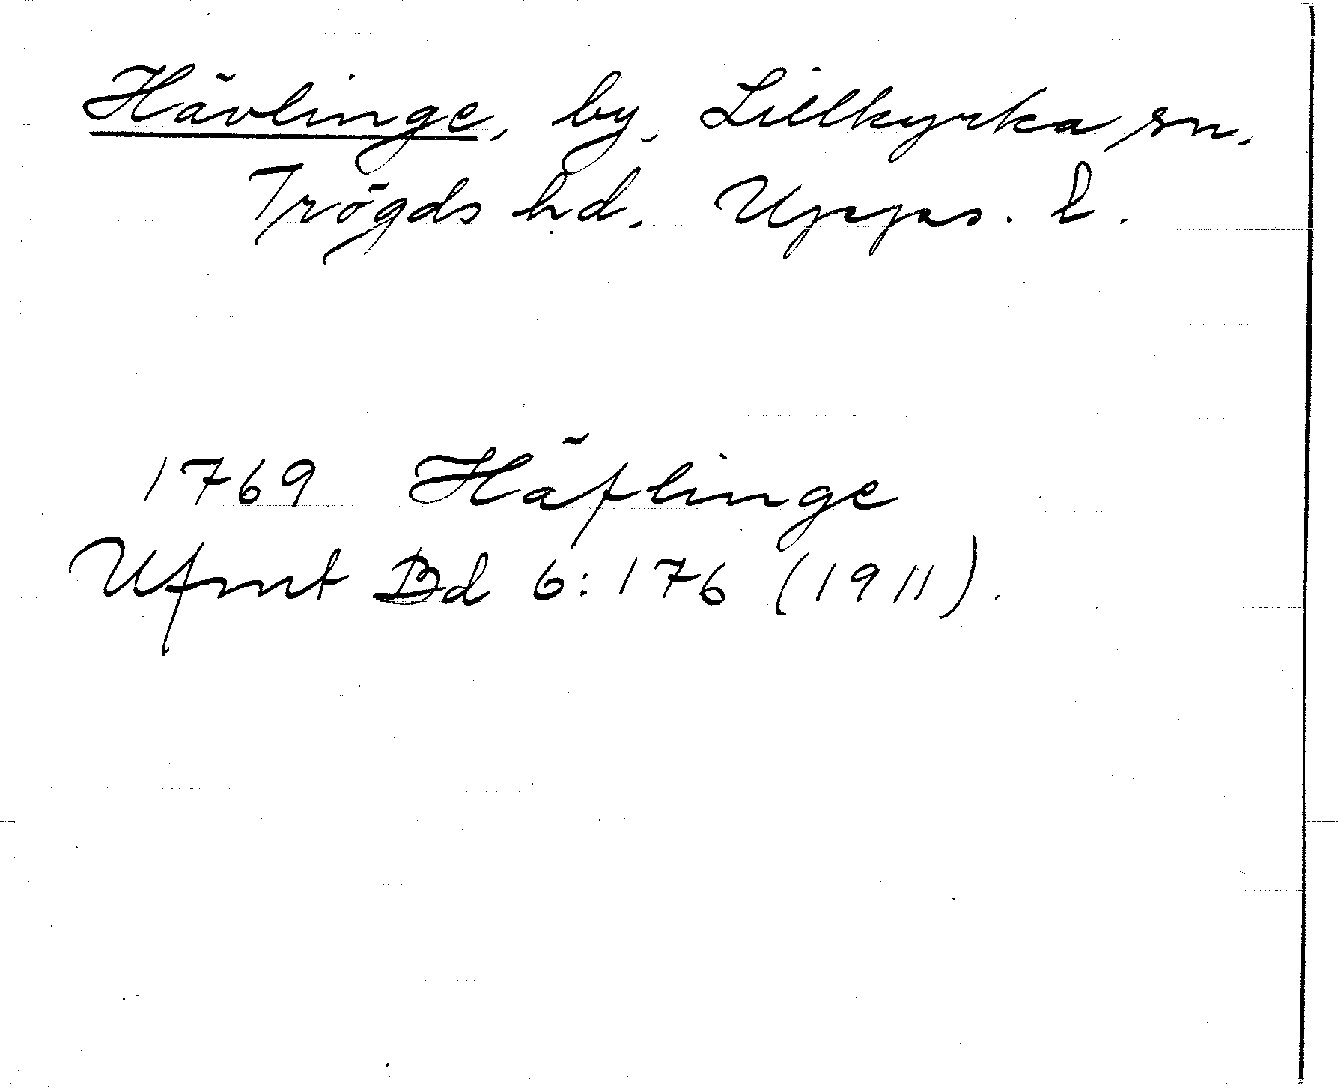 Hävlinge, by, Lillkyrka sn.
Trögds hd. Upps. l.
1769 Häflinge
Ufmt Bd 6:176 (1911).